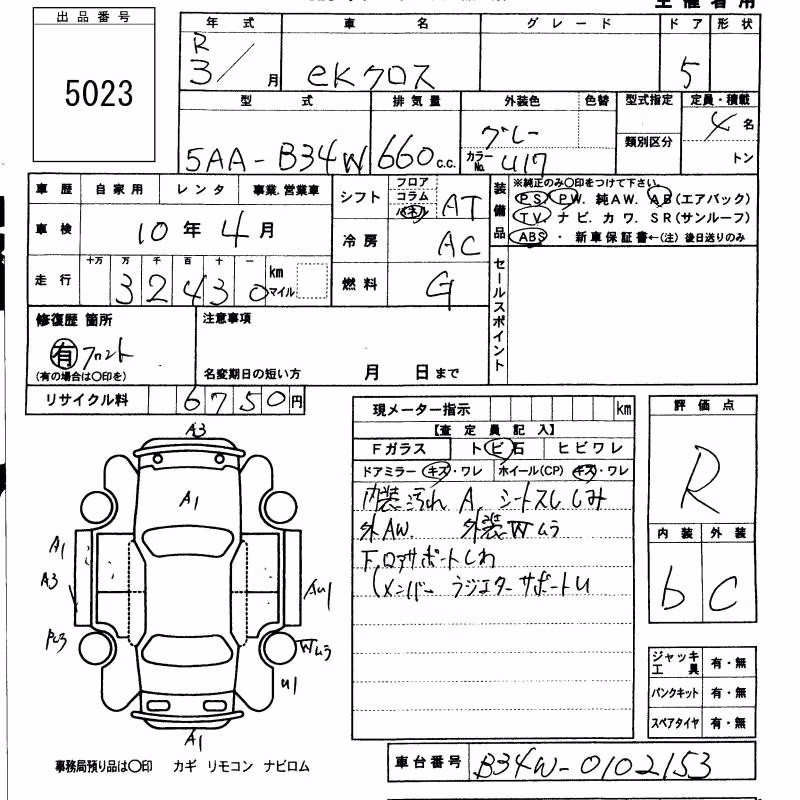 出品番号
5023
年式 車名 グレード ドア 形状
R3／月 eKクロス 5
型式 排気量 外装色 色替 型式指定 定員・積載
類別区分
5AA-B34W 660c.c. グレー カラーNo. U17 4名
トン
車歴 自家用 レンタ 事業.営業車
車検 10年4月
走行 十万 万 千 百 十 一
32430 km マイル
シフト フロア コラム パネル AT
冷房 AC
燃料 G
装備品 ※純正のみ〇印をつけて下さい。
PS PW. 純AW. AB(エアバック)
TV ナビ. カワ. SR(サンルーフ)
ABS ・ 新車保証書←(注) 後日送りのみ
セールスポイント
修復歴 箇所
有 フロント
(有の場合は〇印を)
注意事項
名変期日の短い方 月 日まで
リサイクル料 6750円
現メーター指示 km
【査定員記入】
Fガラス トビ石 ヒビワレ
ドアミラー キズ・ワレ ホイール(CP) キズ・ワレ
内装汚れ A. シートスレ しみ
外AW. 外装Wムラ
F.ロアサポートしわ
(メンバー ラジエターサポートU
評価点
R
内装 外装
b C
A3
A1
A1
A3
AU1
Wムラ
U1
A1
ジャッキ工具 有・無
パンクキット 有・無
スペアタイヤ 有・無
事務局預り品は〇印 カギ リモコン ナビロム
車台番号 B34W-0102153